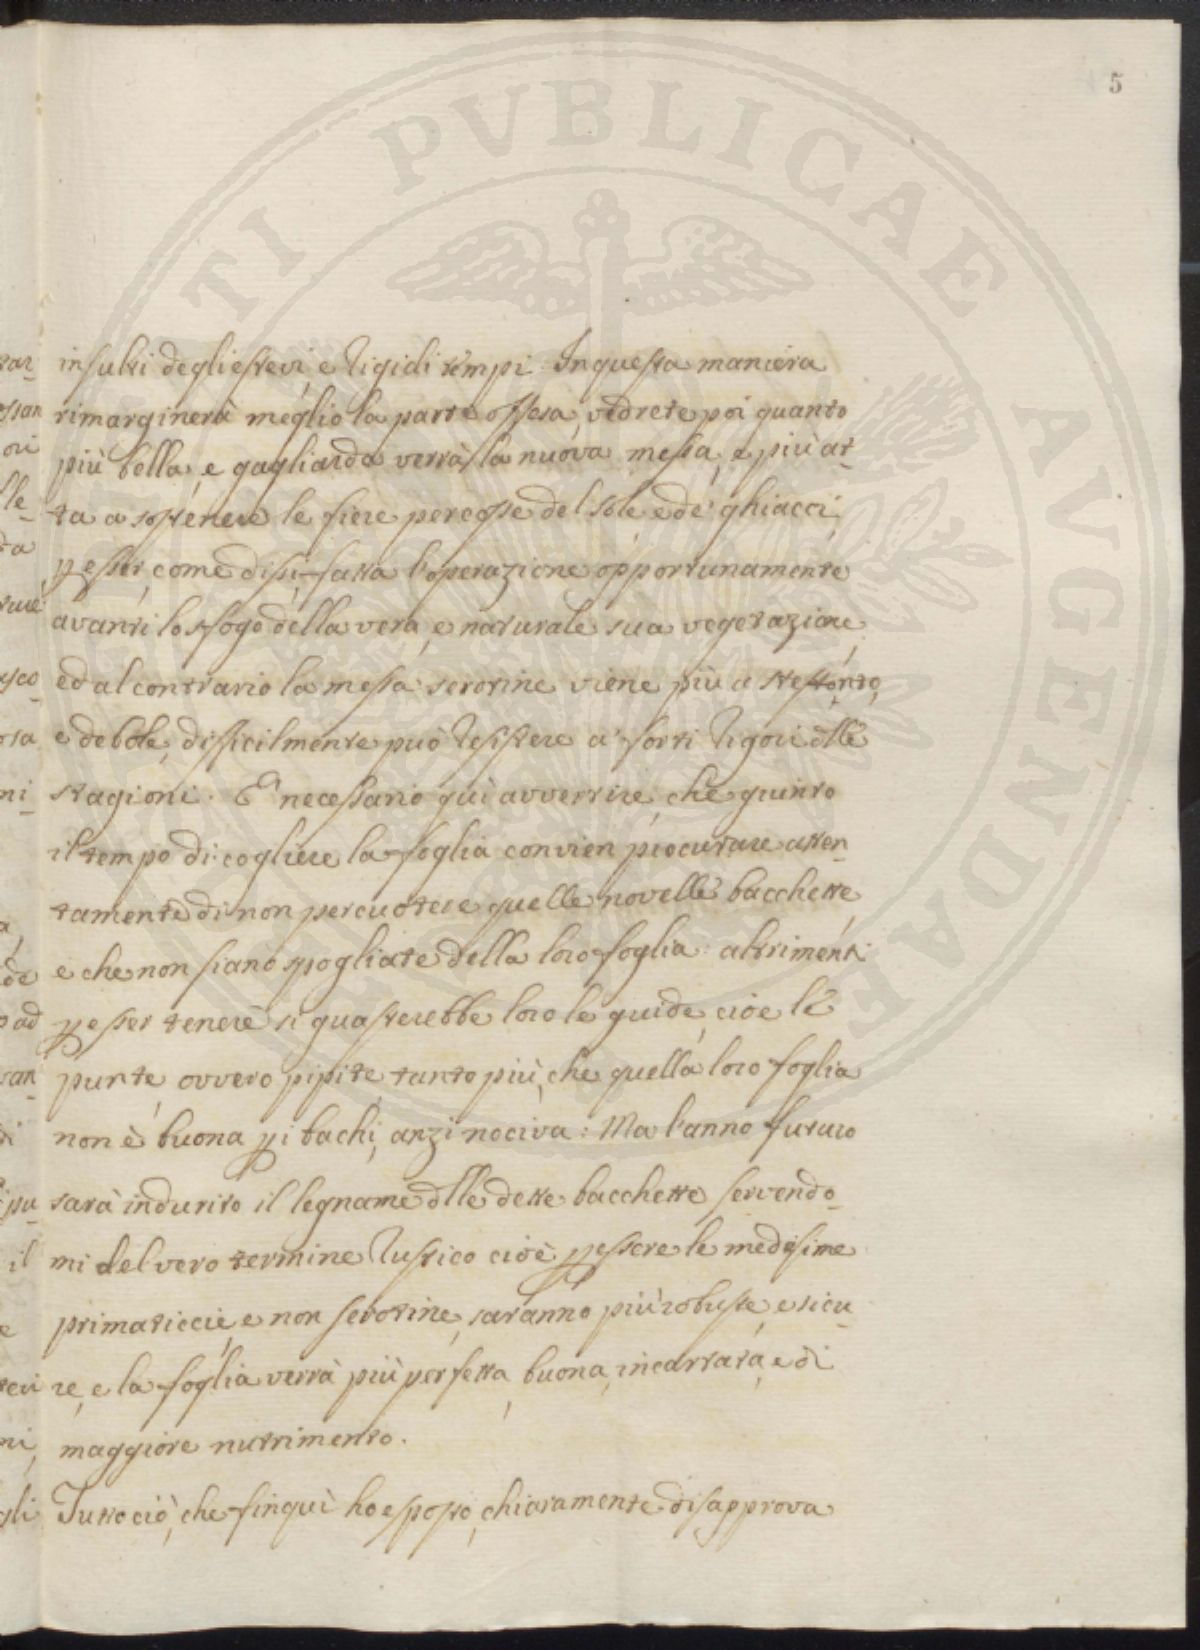 5
insulti degliestevi, e rigidi tempi. Inquesta maniera
rimarginerà meglio la parte offesa, vedrete poi quanto
più bella, e gagliarda verrà la nuova messa, e più at-
ta a sostenere le fiere percosse del sole, e de' ghiacci,
p esser, come dissi, fatta l'operazione opportunamente
avanti lo sfogo della vera, e naturale sua vegetazione,
ed al contrario la messa serotine viene più a
e debole, difficilmente può resistere a' forti rigori dlle
stagioni. E' necessario quì avvertire, che giunto
il tempo di cogliere la foglia convien procurare atten-
tamente di non percuotere quelle novelle bacchette,
e che non siano spogliate della loro foglia: altrimenti
p esser tenere si guasterebbe loro le guide, cioè le
punte, ovvero pipite, tanto più, che quella loro foglia
non è buona p i bachi, anzi nociva: Ma l'anno futuro
sarà indurito il legname dlle dette bacchette servendo-
mi del vero termine rustico cioè p essere le medesime
primaticcie, e non serotine, saranno più robuste, e sicu-
re, e la foglia verrà più perfetta, buona, incartata, e di
maggiore nutrimento.
Tutto ciò, che finquì ho esposto, chiaramente disapprova
PUBLICAE AVGENDAE